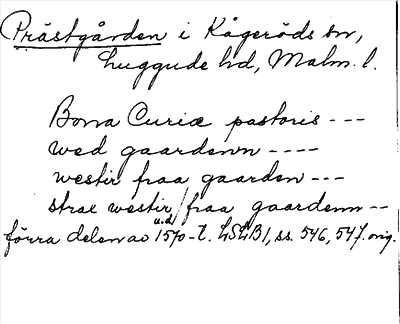 Prästgården i Kågeröds sn,
Luggude hd, Malm. l.
Bona Curiæ pastoris ---
wed gaardenn ----
westir fraa gaarden ---
strax westir / fraa gaardenn --
u.å.
förra delen av 1570-t. LSLB1, ss. 546, 547. orig.